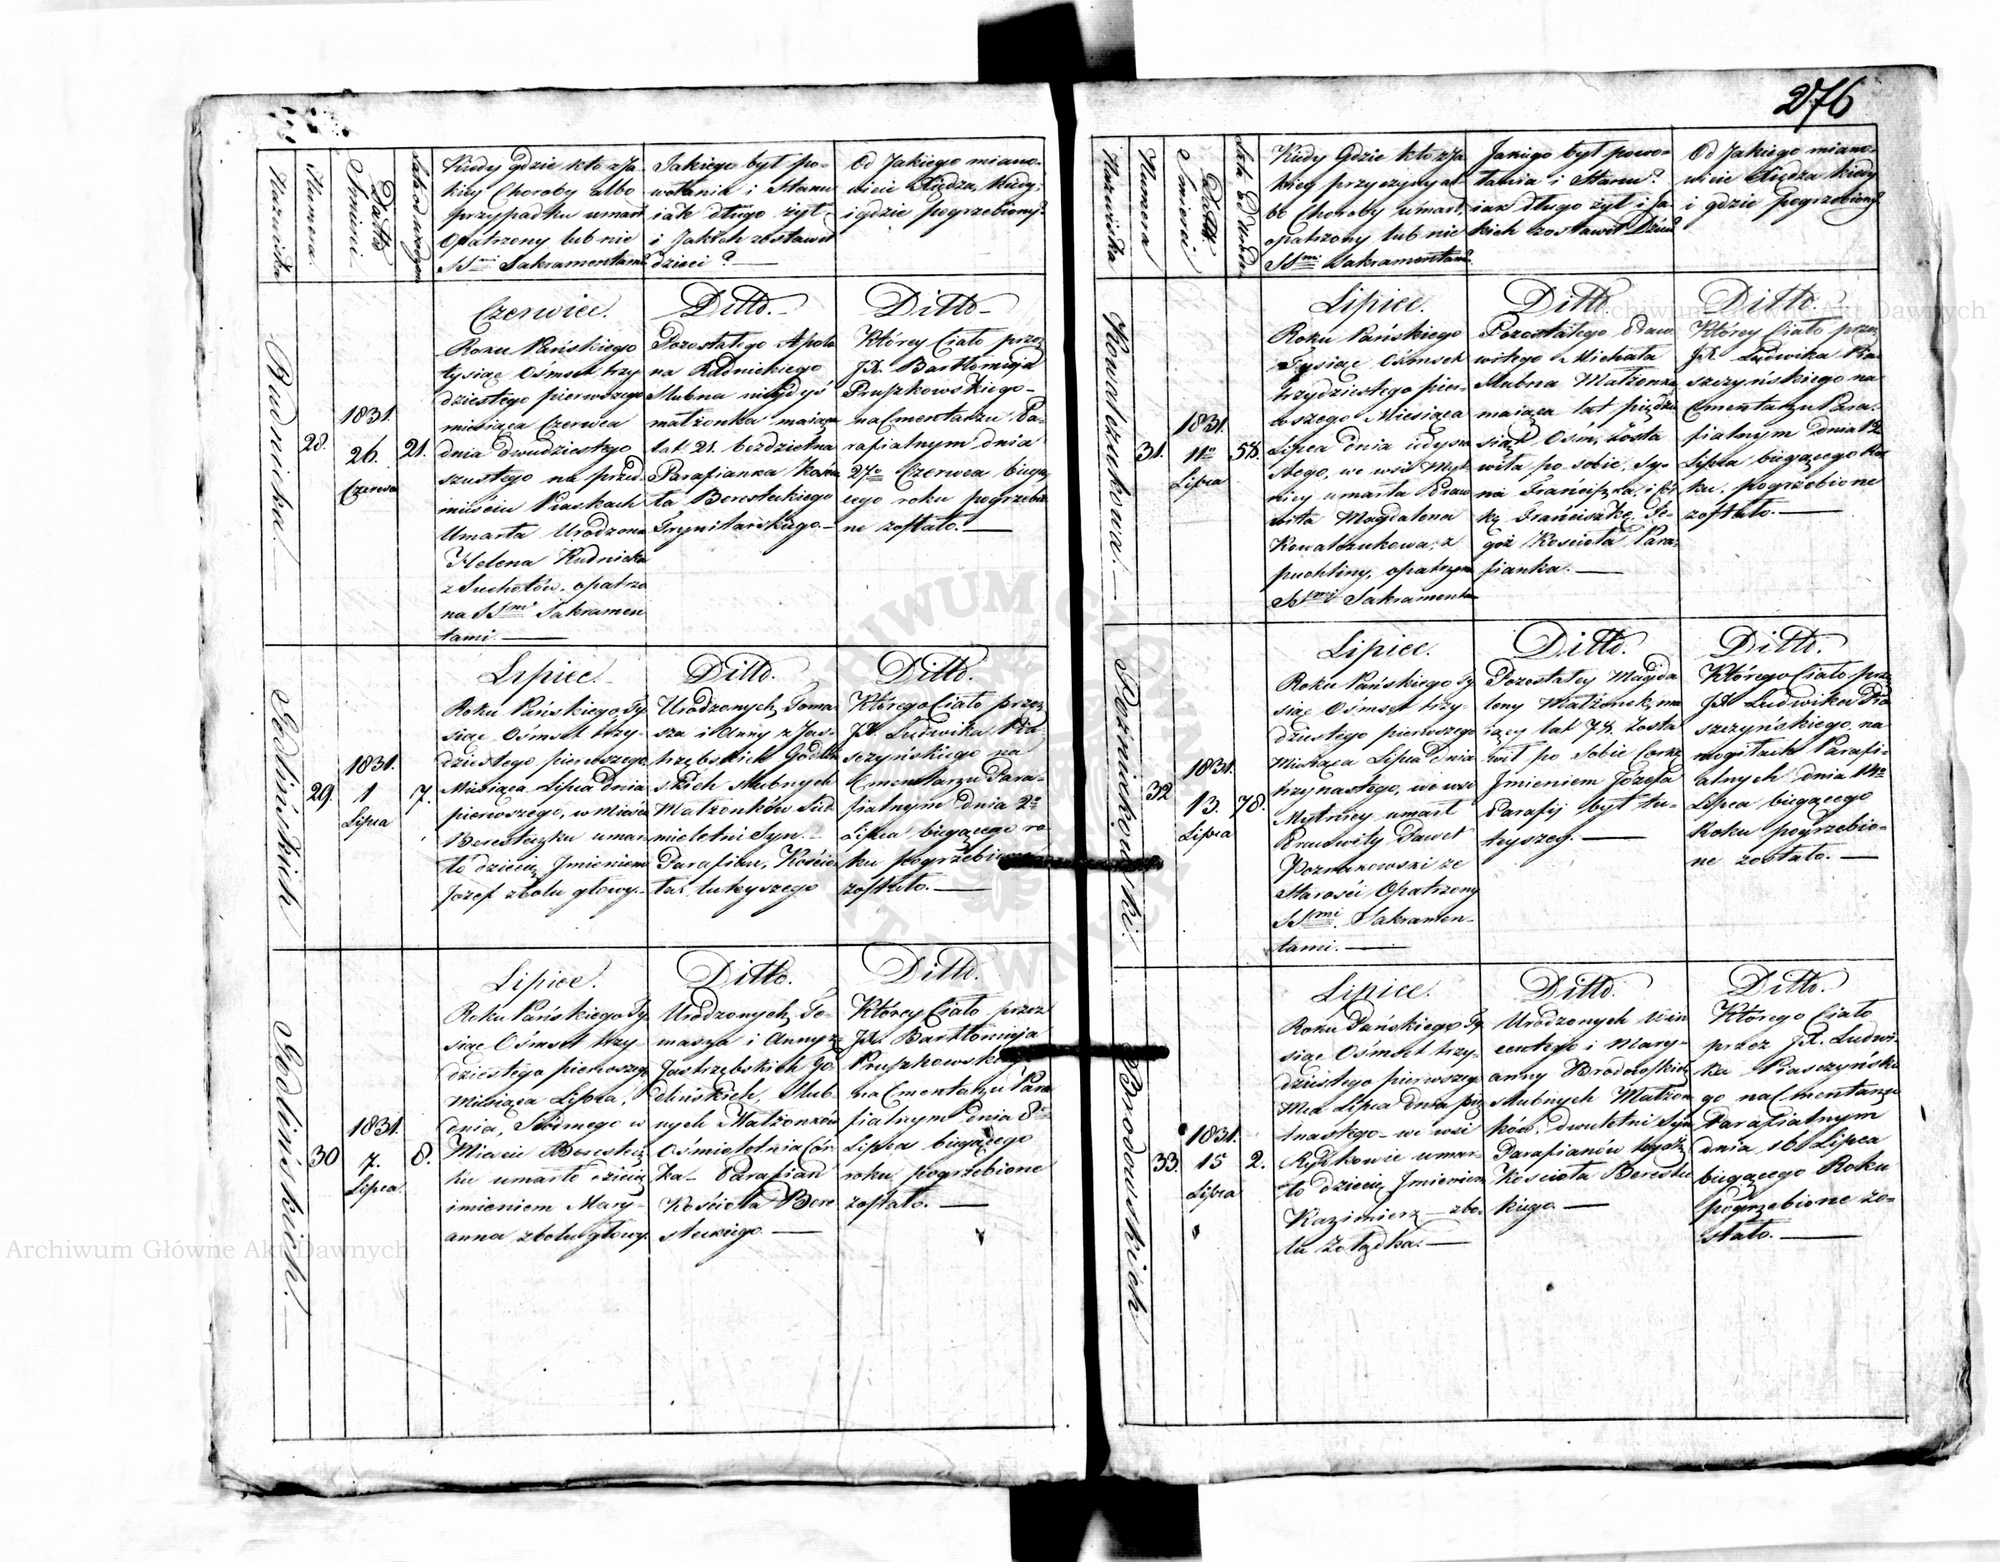 276
Nazwiska
Numera
Datta Śmierci
Kiedy gdzie kto z Ja-
kiey Choroby albo
przypadku umarł
Opatrzony lub nie
SSmi Sakramentami?
Jakiego był po-
wołania i Stanu
iak długo żył
i Jakich zostawił
dzieci?
Od Jakiego miano-
wicie Xiędza, kiedy
i gdzie pogrzebiony?
Rudnicka
28.
1831.
26.
Czerwca
21.
Czerwiec.
Roku Pańskiego
tysiąc Ośmset trzy
dziestego pierwszego
miesiąca Czerwca
dnia dwudziestego
szustego na przed
mieściu Piaskach
Umarła Urodzona
Helena Rudnicka
z Suchotów, opatrzo
na SSmi Sakramen
tami.
Ditto.
Pozostałego Apolo
na Rudnickiego
Slubna niegdyś
małżonka maiąca
lat 21. bezdzietna
Parafianka Kościo
ła Beresteckiego
Trynitarskiego.
Ditto
Którey Ciało przez
JX. Bartłomieja
Pruszkowskiego
na Cmentarzu Pa-
rafialnym dnia
27o Czerwca bieżą
cego roku pogrzebio
ne zostało.
Godlińskich
29.
1831.
1
Lipca
7.
Lipiec.
Roku Pańskiego Ty
siąc Ośmset trzy-
dziestego pierwszego
Miesiąca Lipca dnia
pierwszego, w Mieście
Beresteczku umar
ło dziecię Jmieniem
Jozef z bolu głowy.
Ditto.
Urodzonych Toma
sza i Anny z Jas-
trzębskich Godliń
skich Slubnych
Małżonków Sied
mioletni Syn.
Parafian, Kościo
ła tuteyszego
Ditto.
Którego Ciało przez
JX. Ludwika Pia
szczyńskiego na
Cmentarzu Para-
fialnym dnia 2o
Lipca bieżącego ro
ku pogrzebione
zostało.
Godlińskich
30
1831.
7.
Lipca.
8.
Lipiec.
Roku Pańskiego Ty
siąc Ośmset trzy
dziestego pierwszego
Miesiąca Lipca,
dnia, Siódmego w
Mieście Berestecz
ku umarło dziecię
imieniem Mary-
anna z bolu głowy.
Ditto.
Urodzonych To-
masza i Anny z
Jastrzębskich Go
dlińskich, Slub-
nych Małżonków
Ośmioletnia Cór
ka Parafian
Kościoła Bere
steckiego.
Ditto.
Którey Ciało przez
JX. Bartłomieja
Pruszkowskiego
na Cmentarzu Para
fialnym dnia 8o
Lipca bieżącego
roku pogrzebione
zostało.
Nazwiska
Numera
Datta Śmierci
Kiedy Gdzie kto z Ja
kiey przyczyny al-
bo Choroby umarł,
opatrzony lub nie
SSmi Sakramentami?
Jakiego był powo-
łania i Stanu?
iak długo żył i Ja-
kich zostawił Dzieci?
Od Jakiego miano-
wicie Xiędza kiedy
i gdzie pogrzebiony?
Kowalczukowa.
31.
1831.
11o
Lipca
58.
Lipiec.
Roku Pańskiego
Tysiąc Ośmset
trzydziestego pier-
wszego Miesiąca
Lipca dnia iedyna
stego, we wsi Myt
nicy umarła Praco
wita Magdalena
Kowalczukowa, z
puchliny, opatrzona
SSmi Sakramenta
Ditto
Pozostałego Praco
witego Michała
Slubna Małżonka
maiąca lat pięćdzie
siąt Ośm, Zosta
wiła po sobie, Sy-
na Franciszka, i Cór
kę Franciszkę, Te-
goż Kościoła Para-
fianka.
Ditto.
Którey Ciało przez
JX. Ludwika Pia
szczyńskiego na
Cmentarzu Para-
fialnym dnia 12
Lipca bieżącego Ro
ku, pogrzebione
zostało.
Pozniachowski.
32
1831.
13.
Lipca
78.
Lipiec.
Roku Pańskiego Ty
siąc Ośmset trzy-
dziestego pierwszego
Miesiąca Lipca dnia
trzynastego, we wsi
Mytnicy umarł
Pracowity Paweł
ze
Starości Opatrzony
SSmi. Sakramen-
tami.
Ditto.
Pozostałey Magda
leny Małżonek, ma
iący lat 78. Zosta
wił po Sobie Corkę
Jmieniem Jozefa
Parafij był tu-
teyszey.
Ditto.
Którego Ciało przez
JX Ludwika Pia
szczyńskiego, na
mogiłach Parafi-
alnych dnia
Lipca bieżącego
Roku pogrzebio-
ne zostało.
Brodowskich
33.
1831.
15
Lipca
2.
Lipiec.
Roku Pańskiego Ty
siąc Ośmset trzy-
dziestego pierwszego
Mca Lipca dnia pię
tnastego we wsi
umar-
ło dziecię Jmieniem
Kazimierz z bo-
lu żołądka.
Ditto.
Urodzonych Win
centego i Mary-
anny Brodowskich
Slubnych Małżon
ków, dwuletni Syn
Parafianów tychż
Kościoła Berestec
kiego.
Ditto.
Którego Ciało
przez JX. Ludwi-
ka Piaszczyńskie
go na Cmentarzu
Parafialnym
dnia 16 Lipca
bieżącego Roku
pogrzebione zo-
stało.
Archiwum Główne Akt Dawnych
Archiwum Główne Akt Dawnych